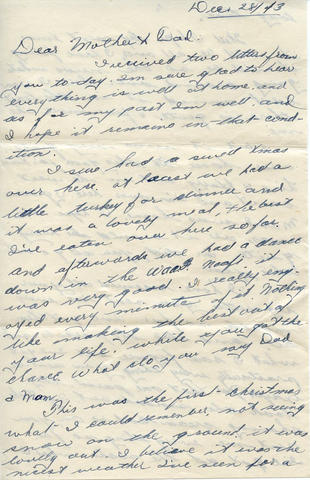 Dec 28/43
Dear Mother & Dad.
I received two letters from
you to-day I'm sure glad to hear
everything is well at home. and
as for my past I'm well. and
I hope it remains in that cond-
ition.
I sure had a swell Xmas
over here. at least we had a
little turkey for dinner and
it was a lovely meal, the best
I've eaten over here so far.
and afterwards we had a dance
down in the it
was very good. I really enj-
oyed every minute of it Nothing
like making the best out of
your life. while you got the
chance. What do you say Dad
& Mom.
This was the first Christmas
what I could remember, not seeing
snow on the ground. it was
lovely out. I believe it was the
nicest weather I've seen for a